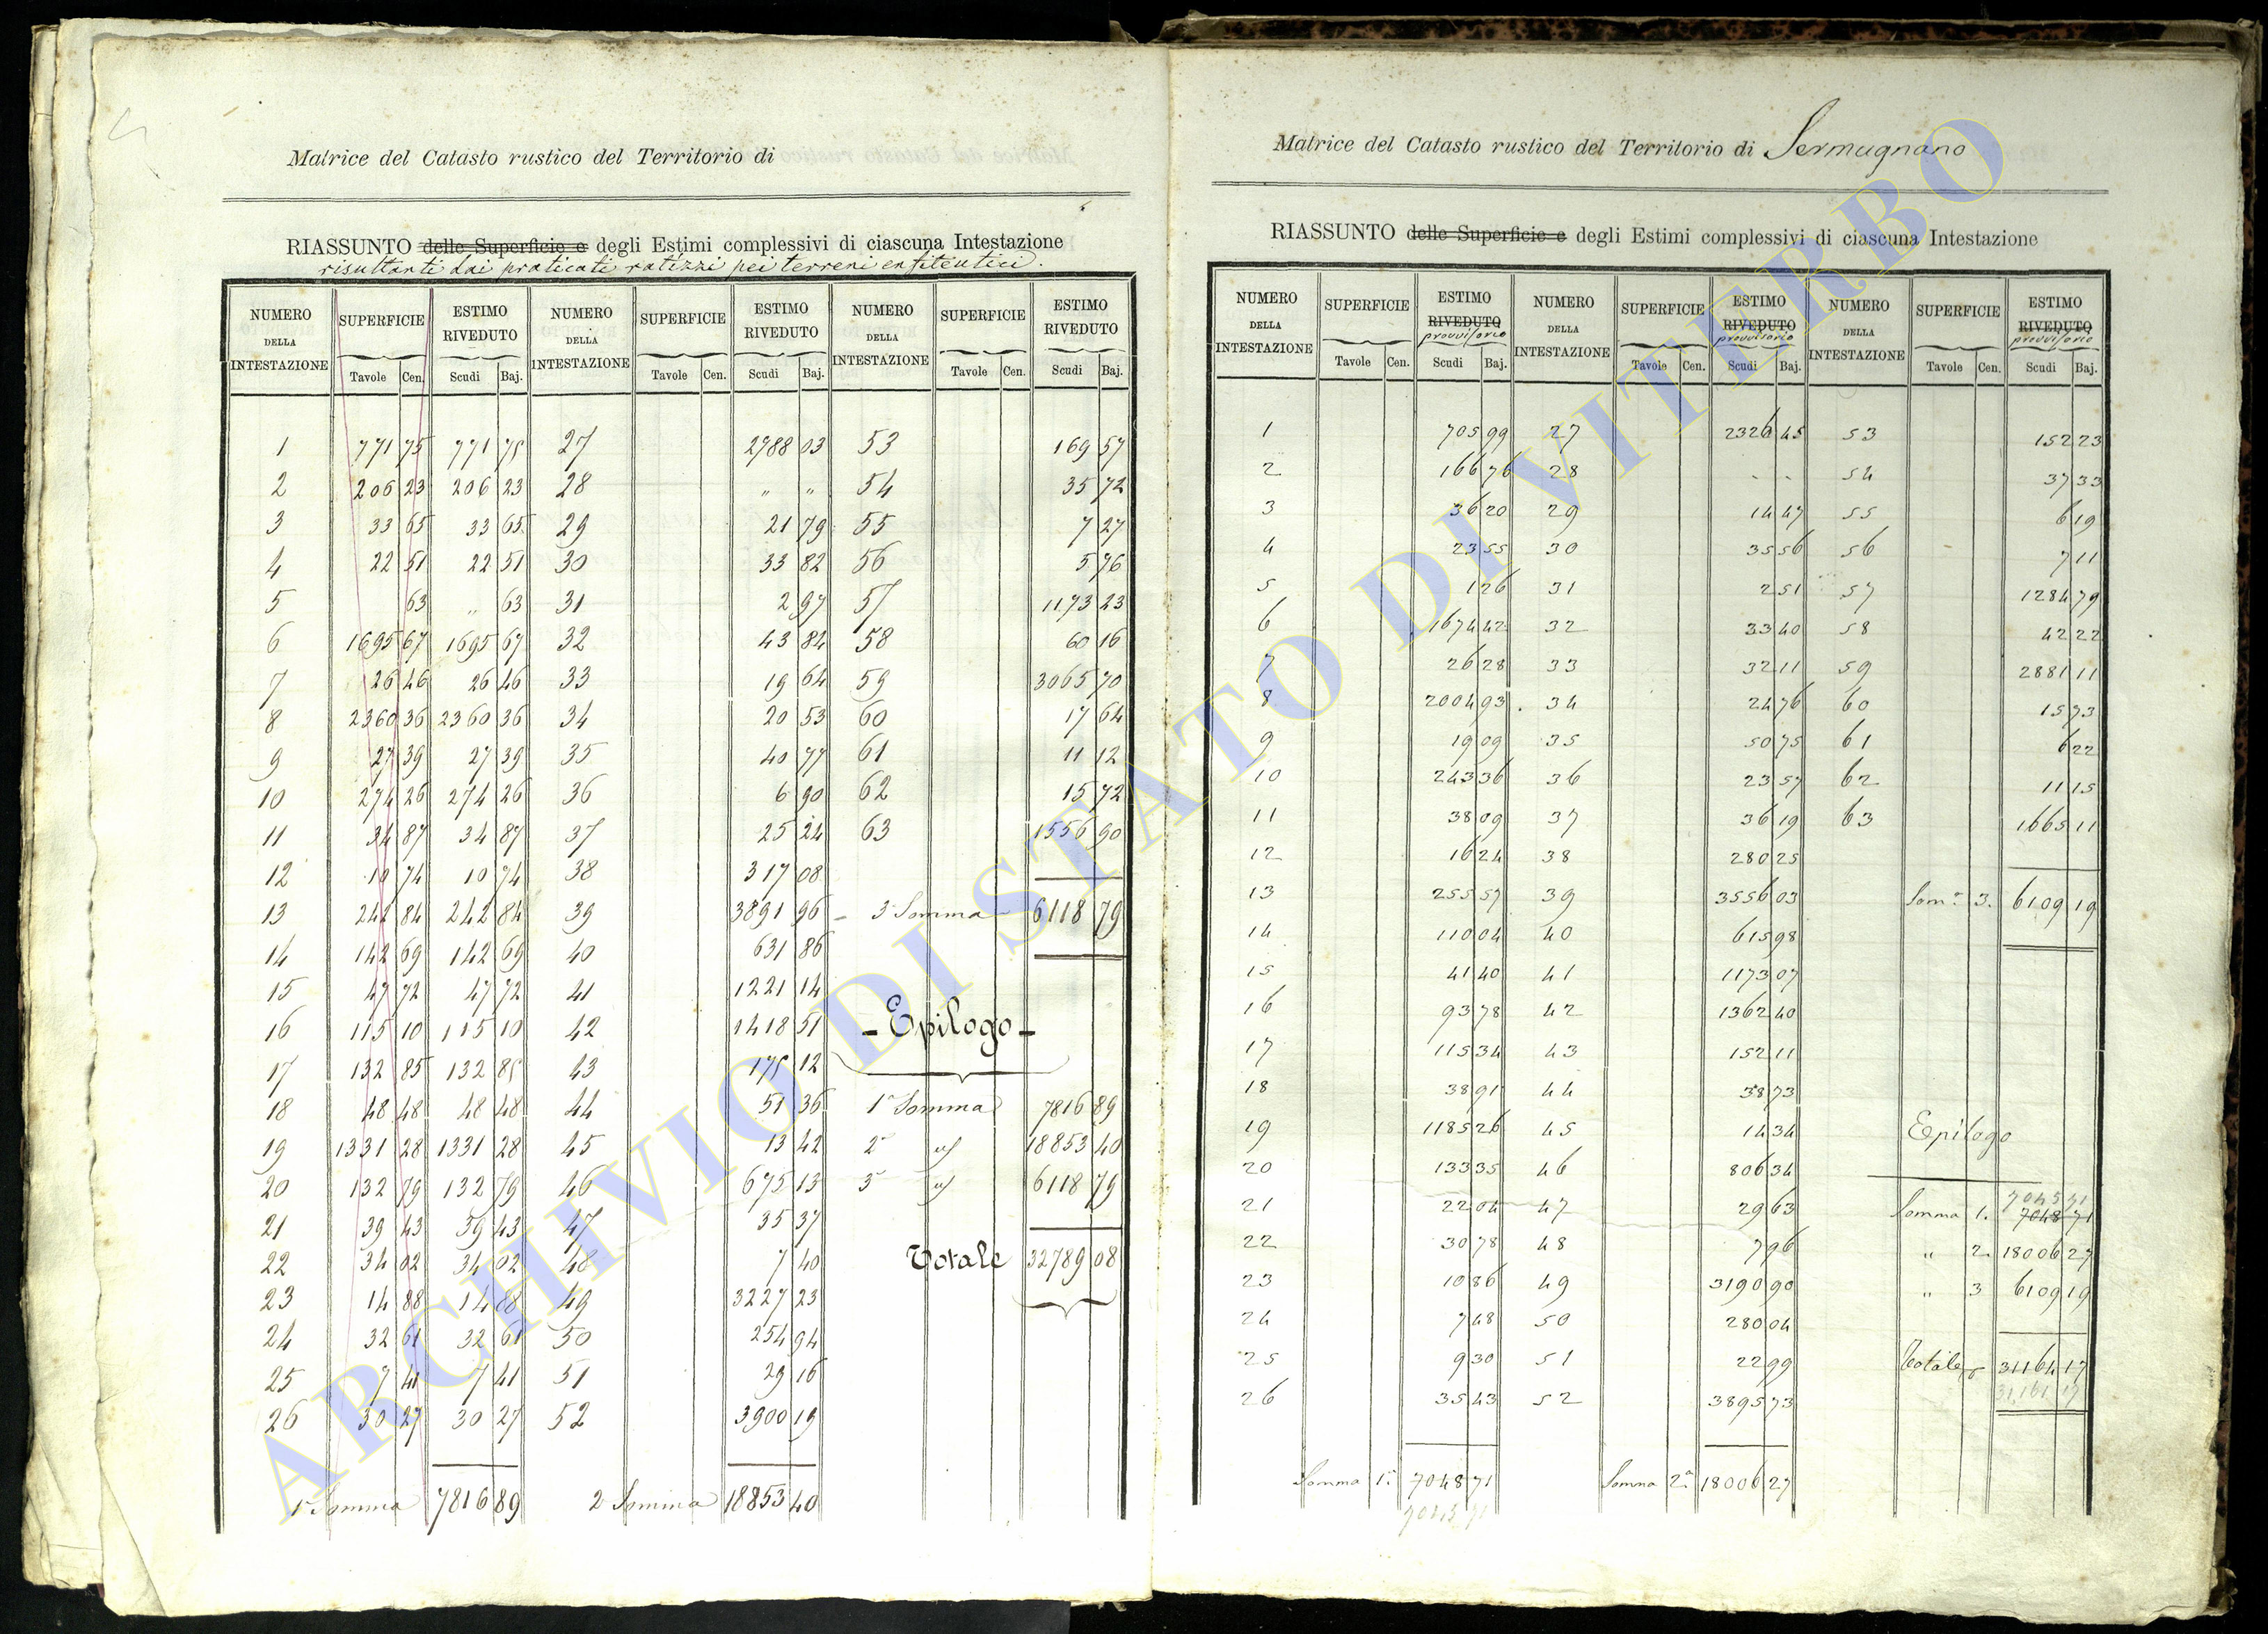 Matrice del Catasto rustico del Territorio di
RIASSUNTO delle Superficie e degli Estimi complessivi di ciascuna Intestazione
risultanti dai praticati ratizzi pei terreni enfiteutici.
NUMERO DELLA INTESTAZIONE SUPERFICIE ESTIMO RIVEDUTO NUMERO DELLA INTESTAZIONE SUPERFICIE ESTIMO RIVEDUTO NUMERO DELLA INTESTAZIONE SUPERFICIE ESTIMO RIVEDUTO
Tavole Cen. Scudi Baj. Tavole Cen. Scudi Baj. Tavole Cen. Scudi Baj.
1 771 75 771 75 27 2988 03 53 169 57
2 206 23 206 23 28 " " 54 35 72
3 33 65 33 65 29 21 79 55 7 27
4 22 51 22 51 30 33 82 56 5 76
5 63 " 63 31 2 97 57 1173 23
6 1695 67 1695 67 32 43 84 58 60 16
7 26 46 26 46 33 19 64 59 3065 70
8 2360 36 2360 36 34 20 53 60 17 64
9 27 39 27 39 35 40 77 61 11 12
10 274 26 274 26 36 6 90 62 15 72
11 34 87 34 87 37 25 24 63 1556 90
12 10 74 10 74 38 317 08
13 242 84 242 84 39 3891 96 - 3ª Somma 6118 79
14 142 69 142 69 40 631 86
15 47 72 47 72 41 1221 14
16 115 10 115 10 42 1418 51 - Epilogo -
17 132 85 132 85 43 175 12
18 48 48 48 48 44 51 36 1ª Somma 7816 89
19 1331 28 1331 28 45 13 42 2ª 18853 40
20 132 79 132 79 46 675 13 3ª 6118 79
21 39 43 39 43 47 35 37
22 34 02 34 02 48 7 40 Totale 32789 08
23 14 88 14 88 49 3227 23
24 32 61 32 61 50 254 94
25 7 41 7 41 51 29 16
26 30 27 30 27 52 3900 19
1ª Somma 7816 89 2ª Somma 18853 40
Matrice del Catasto rustico del Territorio di Sermugnano
RIASSUNTO delle Superficie e degli Estimi complessivi di ciascuna Intestazione
NUMERO DELLA INTESTAZIONE SUPERFICIE ESTIMO RIVEDUTO provvisorio NUMERO DELLA INTESTAZIONE SUPERFICIE ESTIMO RIVEDUTO provvisorio NUMERO DELLA INTESTAZIONE SUPERFICIE ESTIMO RIVEDUTO provvisorio
Tavole Cen. Scudi Baj. Tavole Cen. Scudi Baj. Tavole Cen. Scudi Baj.
1 705 99 27 2326 45 53 152 23
2 166 76 28 - - 54 37 33
3 36 20 29 14 47 55 6 19
4 23 55 30 35 56 56 7 11
5 1 26 31 2 51 57 1284 79
6 1674 42 32 33 40 58 42 22
7 26 28 33 32 11 59 2881 11
8 2004 93 34 24 76 60 15 73
9 19 09 35 50 75 61 6 22
10 243 36 36 23 57 62 11 15
11 38 09 37 36 19 63 1665 11
12 16 24 38 280 25
13 255 57 39 3556 03 Som.ª 3. 6109 19
14 110 04 40 615 98
15 41 40 41 1173 07
16 93 78 42 1362 40
17 115 34 43 152 11
18 38 91 44 38 73
19 1185 26 45 14 34 Epilogo
20 133 35 46 806 34
21 22 04 47 29 63 7045 71
Somma 1. 7048 71
22 30 78 48 7 96 " 2. 18006 27
23 10 86 49 3190 90 " 3 6109 19
24 7 48 50 280 04
25 9 30 51 22 99 Totale 31164 17
31,161 17
26 35 43 52 3895 73
Somma 1ª. 7048 71 Somma 2ª. 18006 27
7045 71
ARCHIVIO DI STATO DI VITERBO